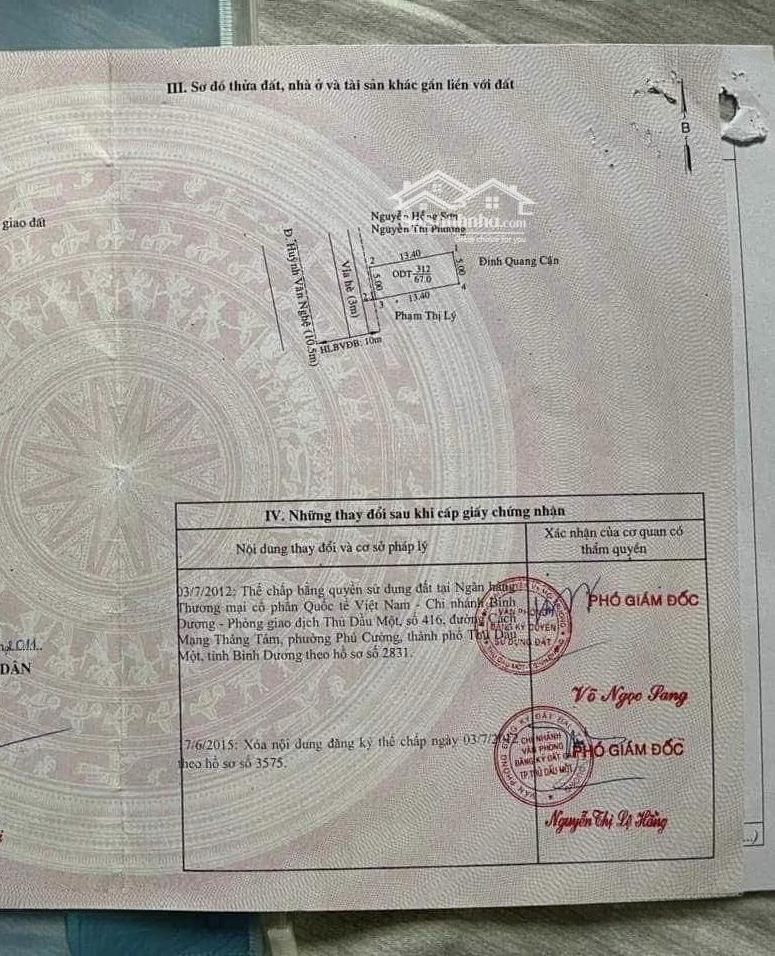 III. Sơ đồ thửa đất, nhà ở và tài sản khác gắn liền với đất
B
giao đất
Nguyễn Hồng Sơn
Nguyễn Thị Phương
Đ. Huỳnh Văn Nghệ (10.5m)
Vỉa hè (3m)
2
13.40
1
5.00
ODT 312
67.0
5.00
Đinh Quang Cận
3
13.40
4
Phạm Thị Lý
HLBVĐB: 10m
IV. Những thay đổi sau khi cấp giấy chứng nhận
Nội dung thay đổi và cơ sở pháp lý
Xác nhận của cơ quan có
thẩm quyền
03/7/2012: Thế chấp bằng quyền sử dụng đất tại Ngân hàng
Thương mại cổ phần Quốc tế Việt Nam - Chi nhánh Bình
Dương - Phòng giao dịch Thủ Dầu Một, số 416, đường Cách
Mạng Tháng Tám, phường Phú Cường, thành phố Thủ Dầu
Một, tỉnh Bình Dương theo hồ sơ số 2831.
VĂN PHÒNG
ĐĂNG KÝ QUYỀN
SỬ DỤNG ĐẤT
PHÓ GIÁM ĐỐC
Võ Ngọc Sang
DÂN
7/6/2015: Xóa nội dung đăng ký thế chấp ngày 03/7/2012
theo hồ sơ số 3575.
CHI NHÁNH
VĂN PHÒNG
ĐĂNG KÝ ĐẤT ĐAI
TP.THỦ DẦU MỘT
PHÓ GIÁM ĐỐC
Nguyễn Thị Lệ Hằng